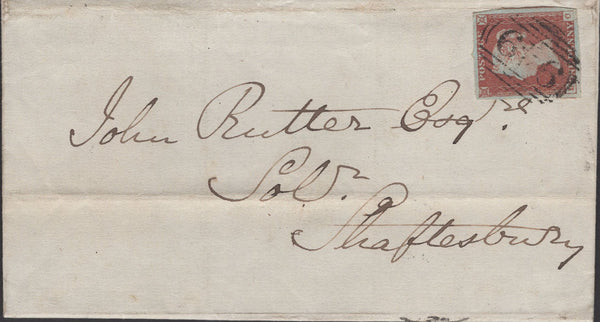 POSTAGE
John Rutter Esqre.
Solr.
Shaftesbury